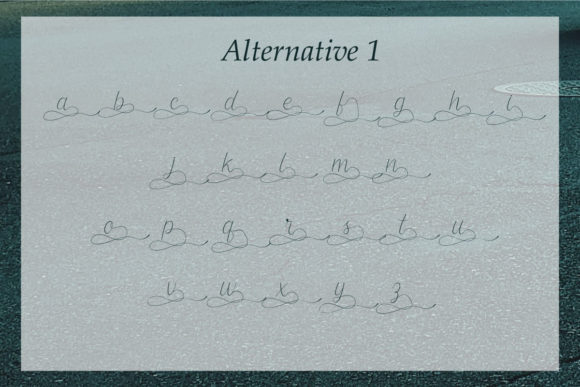 Alternative 1
a b c d e f g h i
j k l m n
o p q r s t u
v w x y z